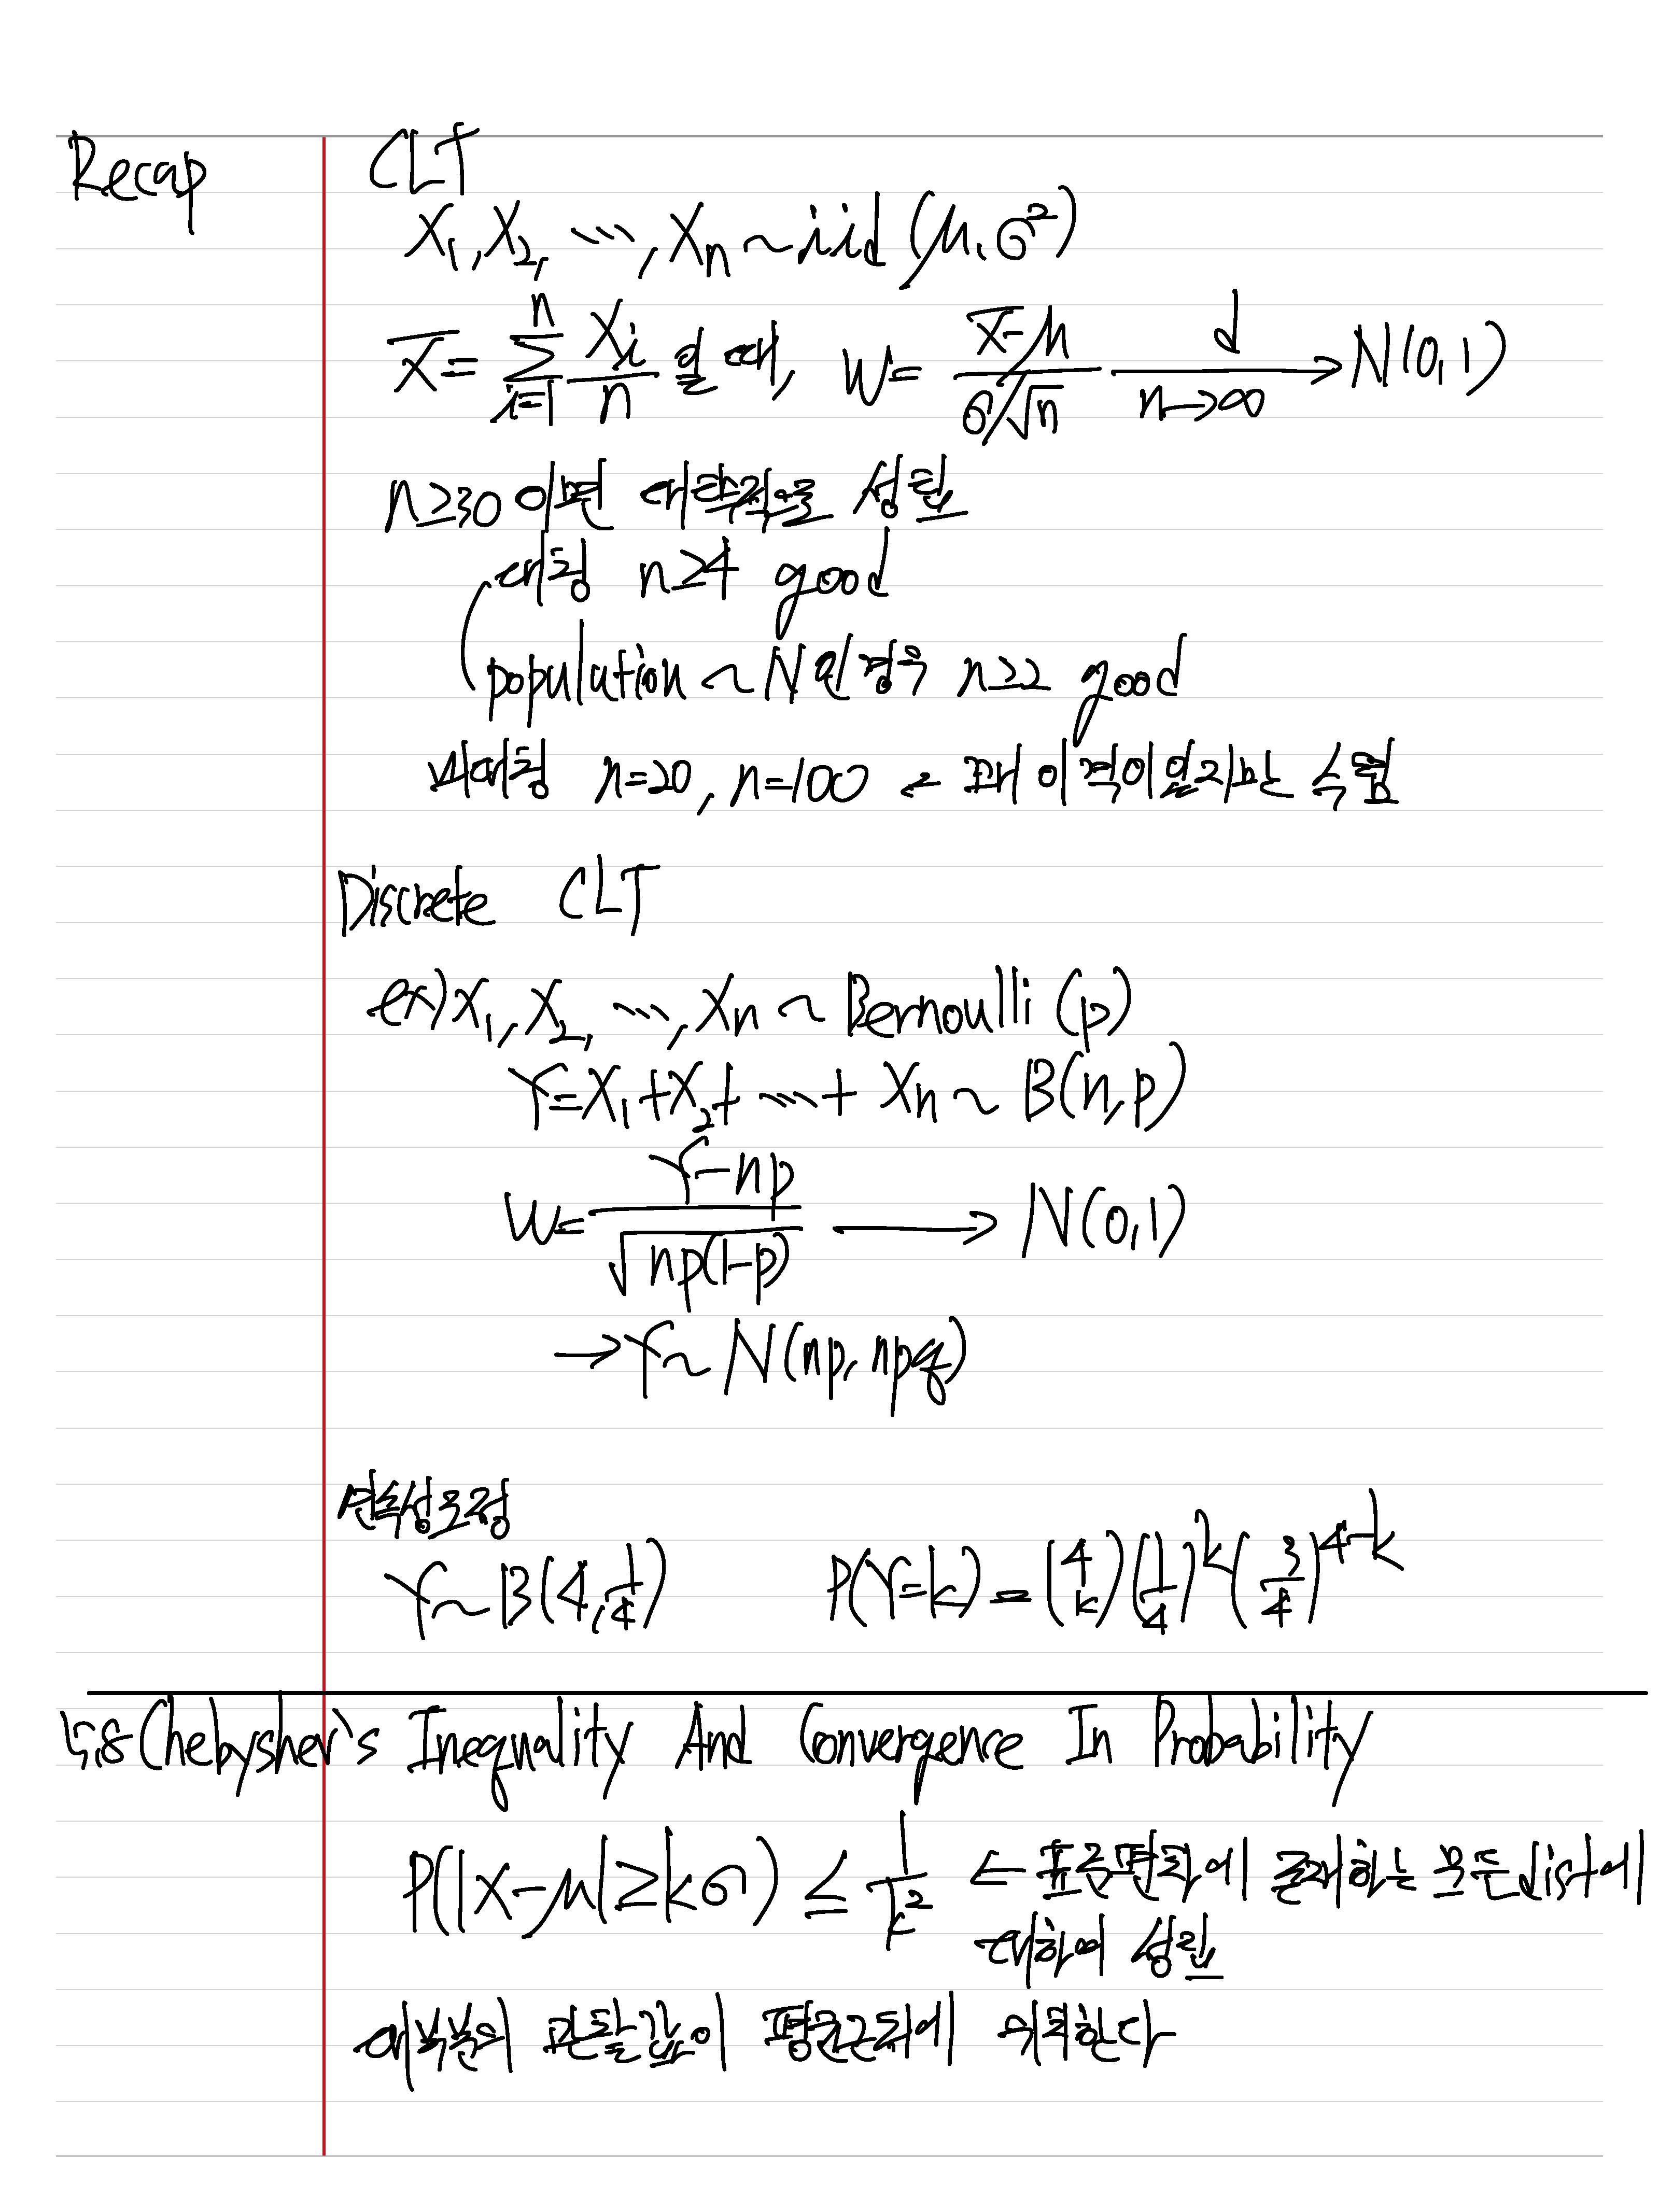 Recap
CLT
X₁, X₂, ⋯, Xn ~ iid (μ, σ²)
X̄ = Σ_{i=1}^{n} Xi/n 일 때, W = (X̄-μ)/(σ/√n) —d→ (n→∞) N(0,1)
n≥30이면 대략적으로 성립
대칭 n≥4 good
population ~ N인경우 n≥2 good
비대칭 n=20, n=100 ← 꽤 이격이있지만 수렴
Discrete CLT
ex) X₁, X₂, ⋯, Xn ~ Bernoulli (p)
Y=X₁+X₂+ ⋯ + Xn ~ B(n,p)
W= (Y-np)/√(np(1-p)) → N(0,1)
→Y~ N(np, npq)
연속성수정
Y~B(4, 1/4) P(Y=k) = (4 k)(1/4)^k(3/4)^{4-k}
5.8 Chebyshev's Inequality And Convergence In Probability
P(|X-μ|≥kσ) ≤ 1/k² ← 표준편차에 존재하는 모든dist에
대하여 성립
대부분의 관찰값이 평균근처에 위치한다